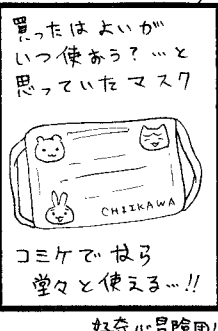 買ったはよいが
いつ使おう?…と
思っていたマスク
CHIIKAWA
コミケでなら
堂々と使える…!!
好奇心冒険団